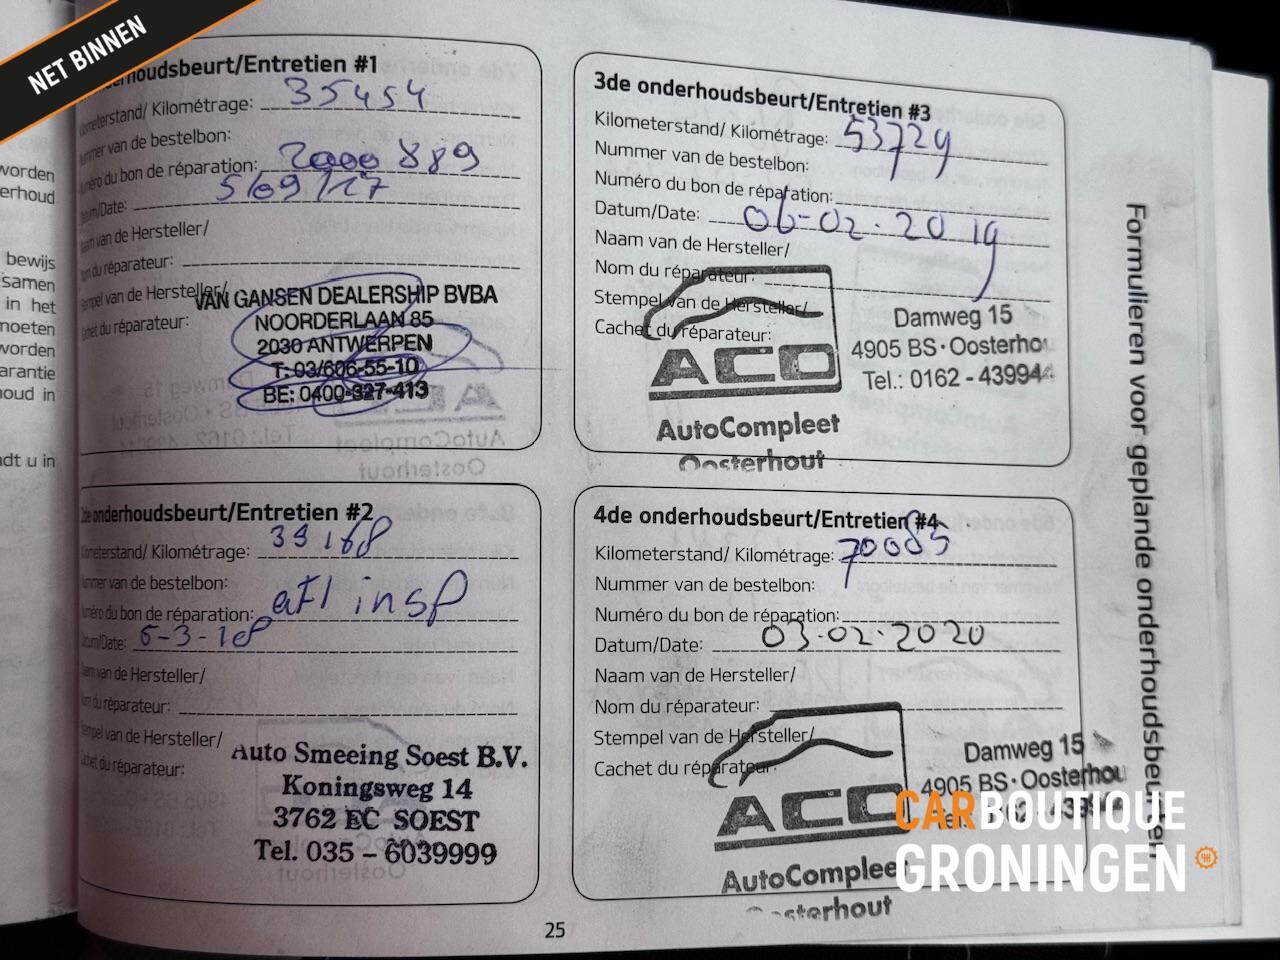 NET BINNEN
worden
erhoud
bewijs
samen
in het
moeten
worden
arantie
houd in
dt u in
houdsbeurt/Entretien #1
Kilometerstand/ Kilométrage: 35454
Nummer van de bestelbon:
Numéro du bon de réparation: 2000889
Datum/Date: 5/09/17
Naam van de Hersteller/
Nom du réparateur:
Stempel van de Hersteller/
Cachet du réparateur:
VAN GANSEN DEALERSHIP BVBA
NOORDERLAAN 85
2030 ANTWERPEN
T: 03/606-55-10
BE: 0400-327-413
2de onderhoudsbeurt/Entretien #2
Kilometerstand/ Kilométrage: 39168
Nummer van de bestelbon:
Numéro du bon de réparation: afl insp
Datum/Date: 6-3-18
Naam van de Hersteller/
Nom du réparateur:
Stempel van de Hersteller/
Cachet du réparateur:
Auto Smeeing Soest B.V.
Koningsweg 14
3762 EC SOEST
Tel. 035 – 6039999
3de onderhoudsbeurt/Entretien #3
Kilometerstand/ Kilométrage: 53729
Nummer van de bestelbon:
Numéro du bon de réparation:
Datum/Date: 06-02-2019
Naam van de Hersteller/
Nom du réparateur:
Stempel van de Hersteller/
Cachet du réparateur:
ACO
AutoCompleet
Oosterhout
Damweg 15
4905 BS·Oosterhou
Tel.: 0162 - 439944
4de onderhoudsbeurt/Entretien #4
Kilometerstand/ Kilométrage: 70085
Nummer van de bestelbon:
Numéro du bon de réparation:
Datum/Date: 03-02-2020
Naam van de Hersteller/
Nom du réparateur:
Stempel van de Hersteller/
Cachet du réparateur:
ACO
AutoCompleet
Oosterhout
Damweg 15
4905 BS·Oosterhou
Formulieren voor geplande onderhoudsbeurten
25
CARBOUTIQUE
GRONINGEN